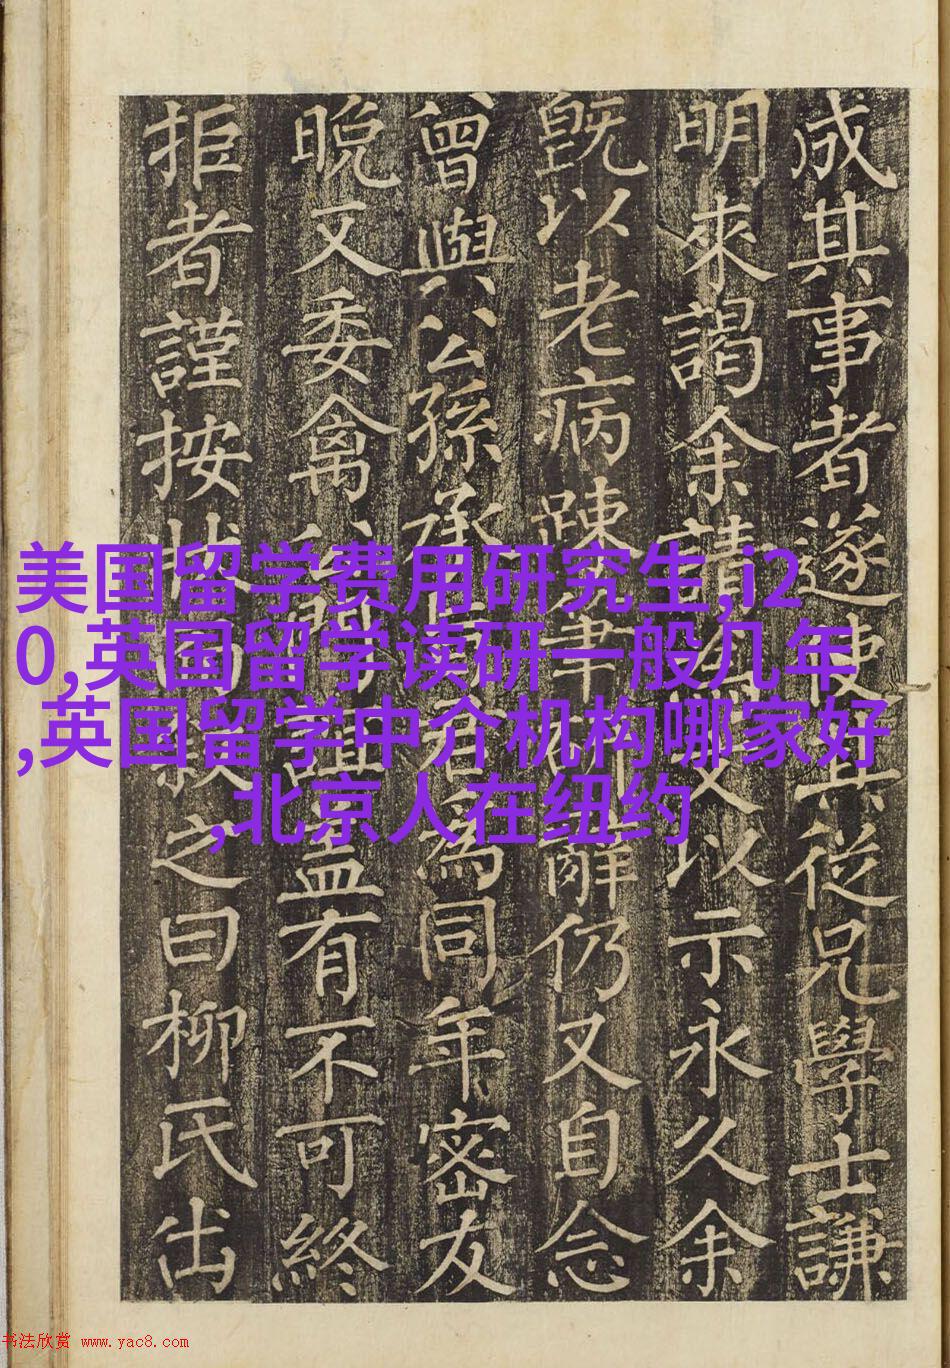 成其事者遂使其從兄學士謙
明來謁余請文以示永久余
既以老病疎筆硯辭仍又自念
曾與公孫承君為同年密友
晩又委禽誼益有不可終
拒者謹按狀敘之曰柳氏出
美国留学费用研究生,i2
0,英国留学读研一般几年
,英国留学中介机构哪家好
,北京人在纽约
书法欣赏 www.yac8.com